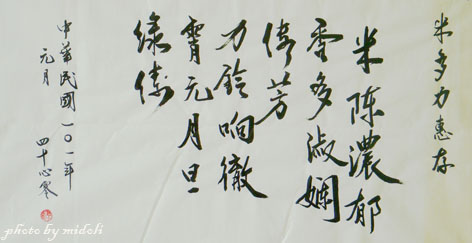 米多力惠存
米陳濃郁
多淑嫻
芳
力鈴响徹
霄元月旦
綠
中華民國一〇一年
元月
四十心零
photo by midoli